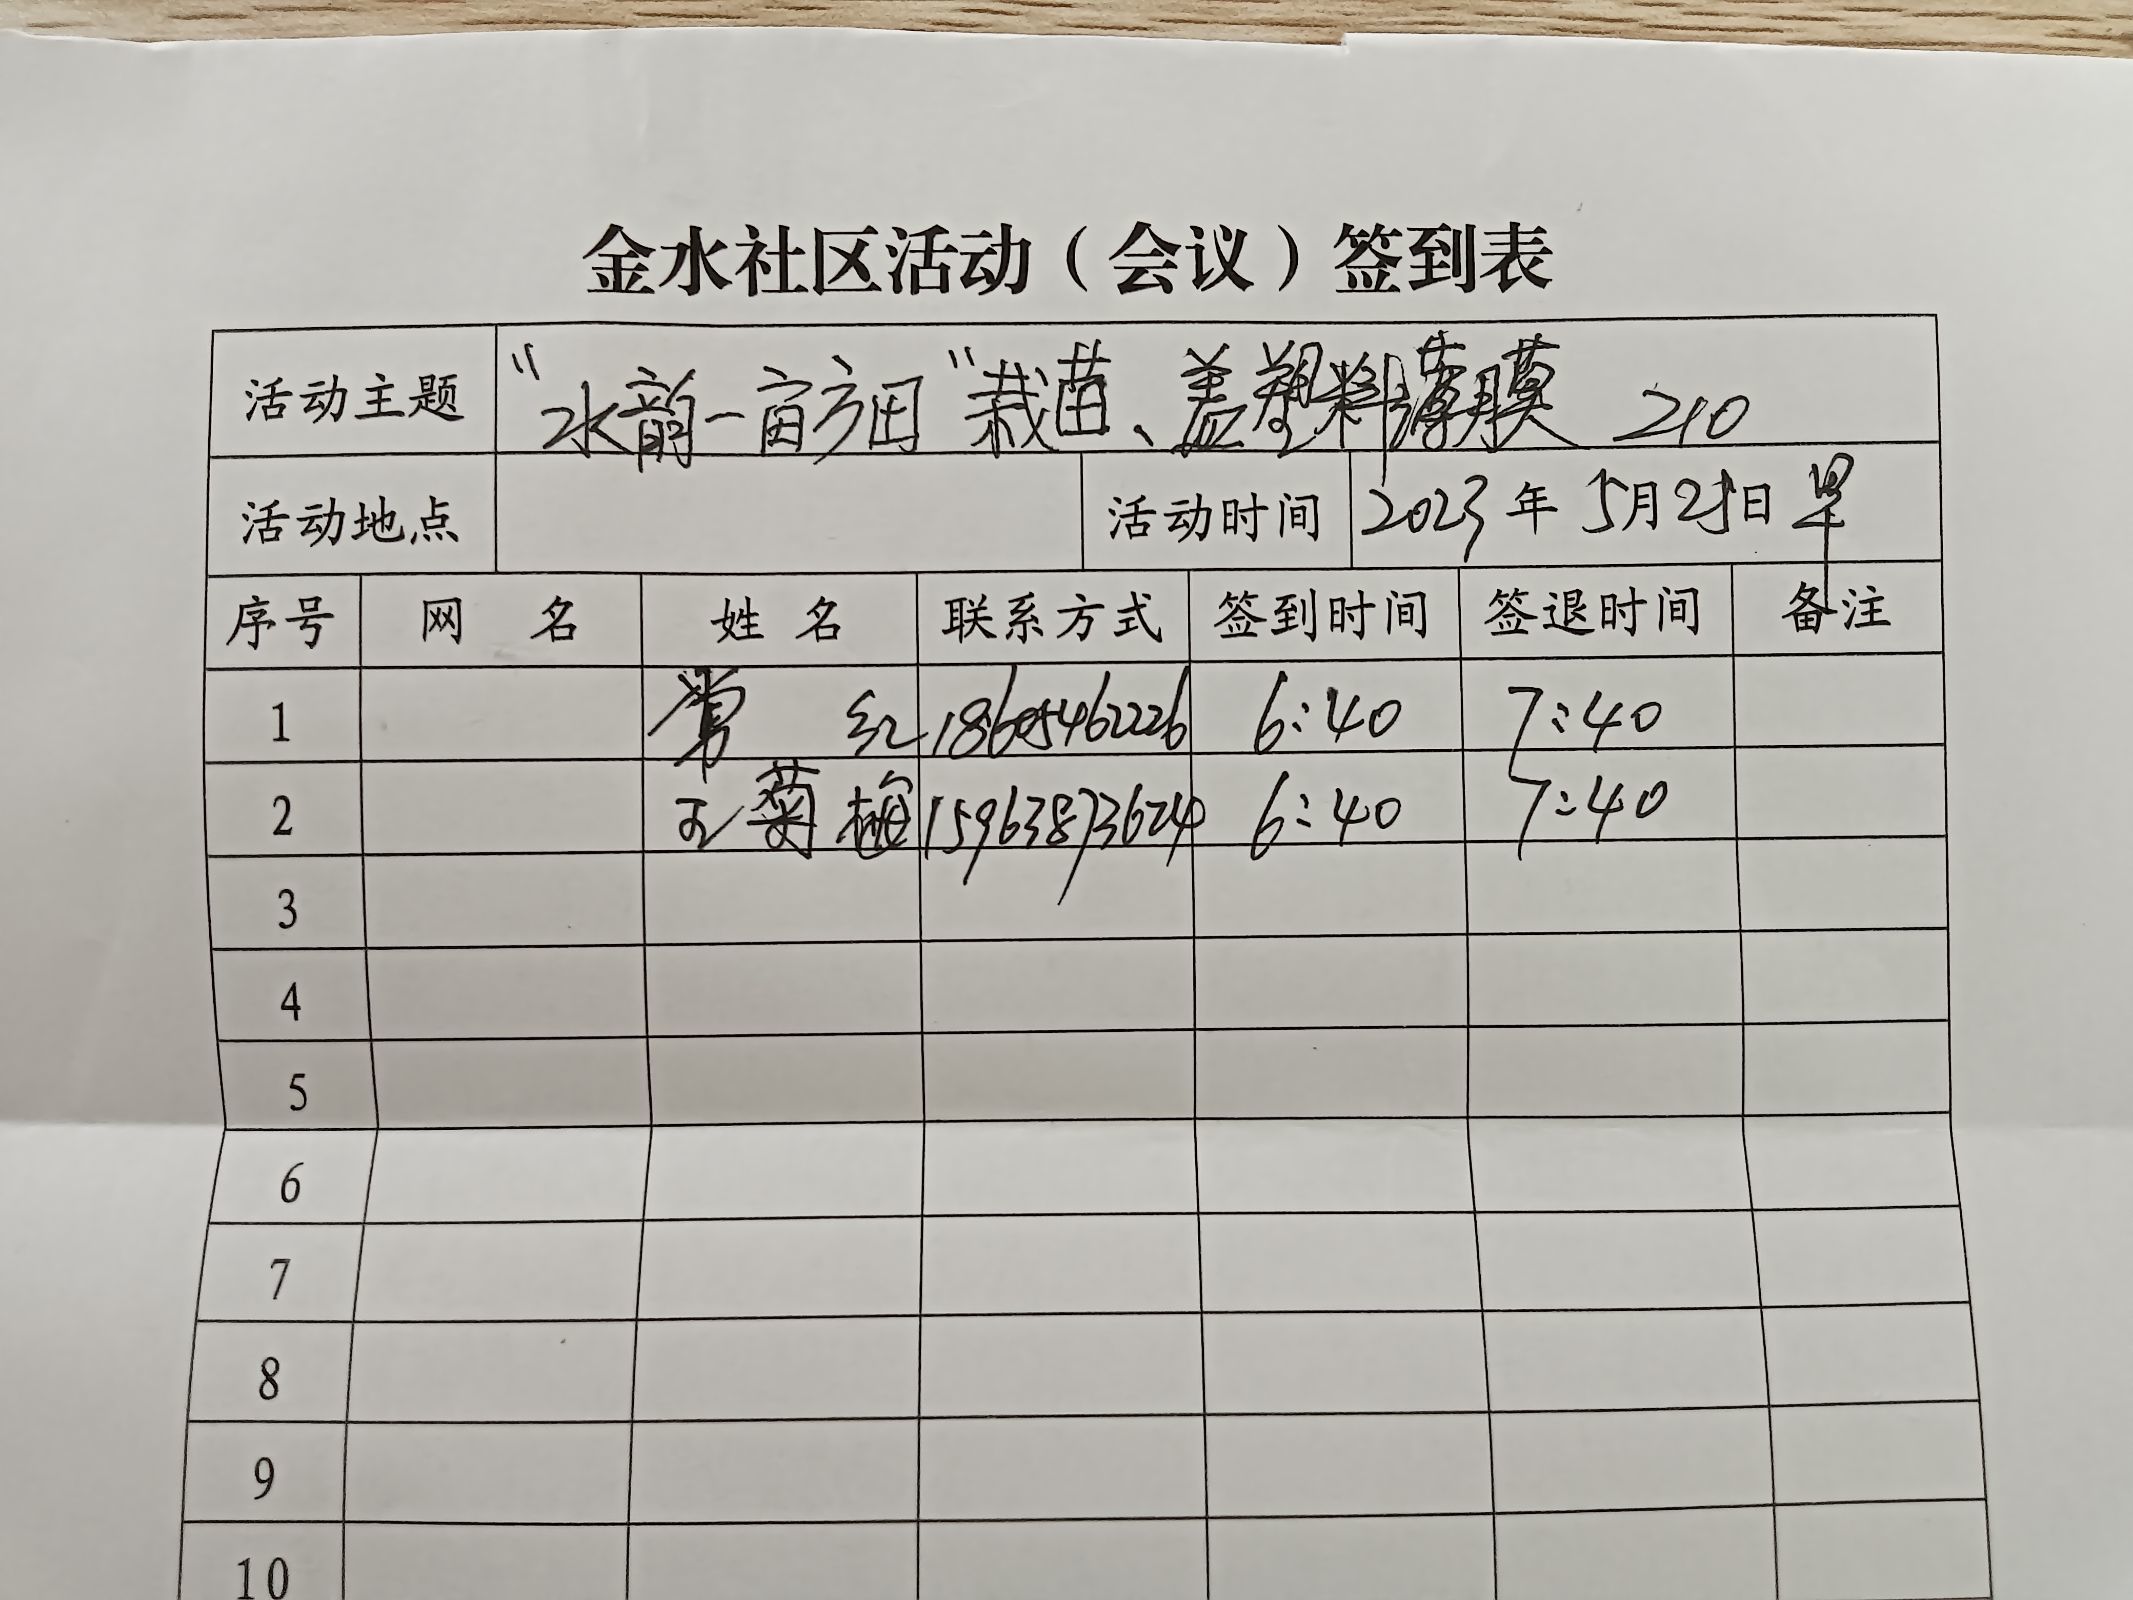 金水社区活动（会议）签到表
活动主题 “水韵一亩方田”栽苗、盖塑料薄膜 210
活动地点 活动时间 2023年5月25日 早
序号 网 名 姓 名 联系方式 签到时间 签退时间 备注
1 红 18605462226 6:40 7:40
2 王菊梅 15963873624 6:40 7:40
3
4
5
6
7
8
9
10